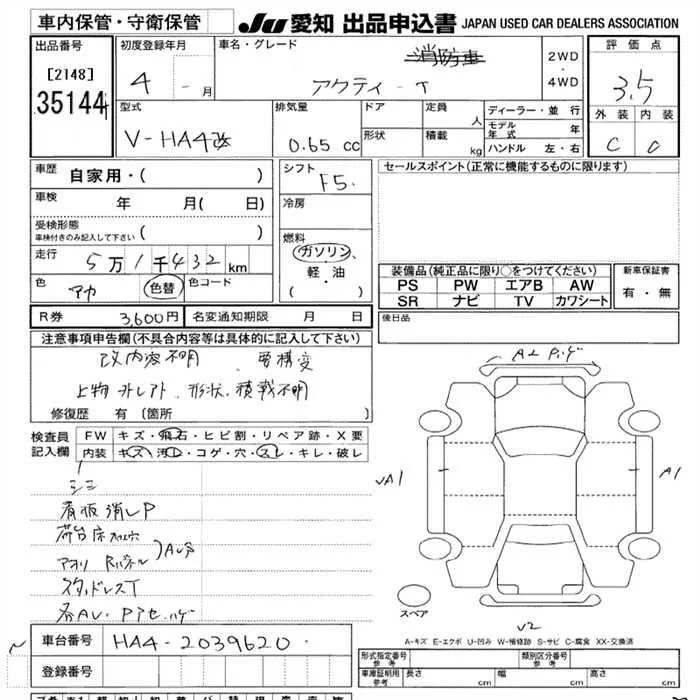 車内保管・守衛保管
JU 愛知 出品申込書 JAPAN USED CAR DEALERS ASSOCIATION
出品番号
[2148]
35144
初度登録年月
4 - 月
車名・グレード
消防車
アクティ - T
2WD
・
4WD
評価点
3.5
外装 内装
C C
型式
V-HA4改
排気量
0.65 cc
ドア
形状
定員 人
積載 kg
ディーラー・並 行
モデル年式 年
ハンドル 左・右
車歴 自家用・( )
車検 年 月( 日)
受検形態
車検付きのみ記入して下さい ( )
走行 5万1千432 km
色 アカ 色替 色コード
R券 3,600円 名変通知期限 月 日
シフト
F5.
冷房
燃料
ガソリン、
軽・油
( )
セールスポイント(正常に機能するものに限ります)
装備品(純正品に限り○をつけてください)
PS PW エアB AW
SR ナビ TV カワシート
新車保証書
有・無
後日品
注意事項申告欄(不具合内容等は具体的に記入して下さい)
改内容不明 要構変
上物 形状、積載不明
修復歴 有 [箇所
検査員
記入欄
FW キズ・飛石・ヒビ割・リペア跡・X要
内装 キズ・汚レ・コゲ・穴・スレ・キレ・破レ
シミ
看板消しP
荷台床
アオリ
スタッドレスT
各AU・P
車台番号 HA4-2039620
登録番号
A2
UA1
A1
スペア
U2
A-キズ E-エクボ U-凹み W-補修跡 S-サビ C-腐食 XX-交換済
形式指定番号
参考
類別区分番号
参考
車庫証明用
参考
長さ cm 幅 cm 高さ cm